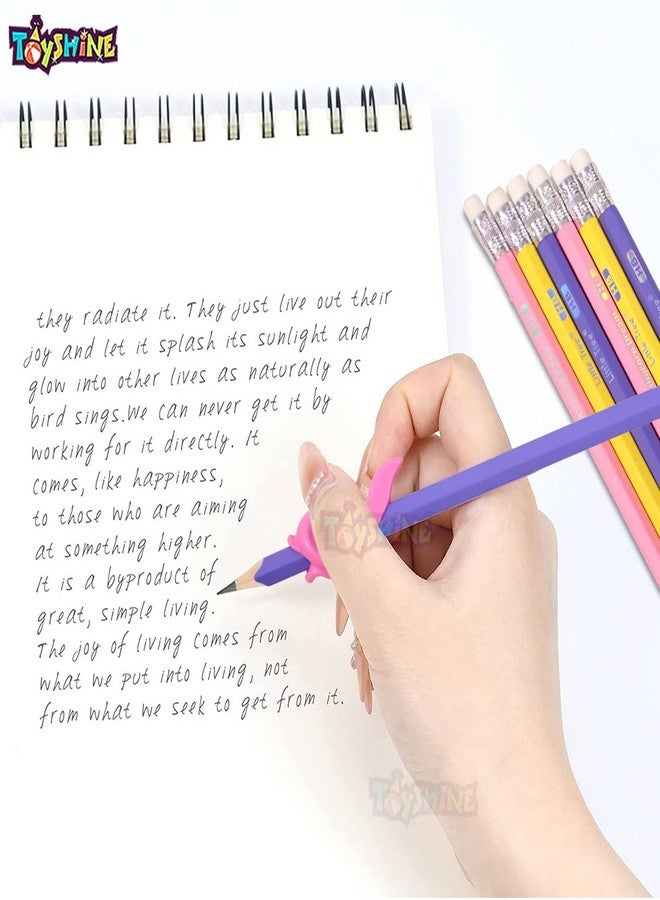 TOYSHINE
they radiate it. They just live out their
joy and let it splash its sunlight and
glow into other lives as naturally as
bird sings.We can never get it by
working for it directly. It
comes, like happiness,
to those who are aiming
at something higher.
It is a byproduct of
great, simple living.
The joy of living comes from
what we put into living, not
from what we seek to get from it.
HB
HB
HB
Little Tree
Little Tree
Little Tree
TOYSHINE
TOYSHINE